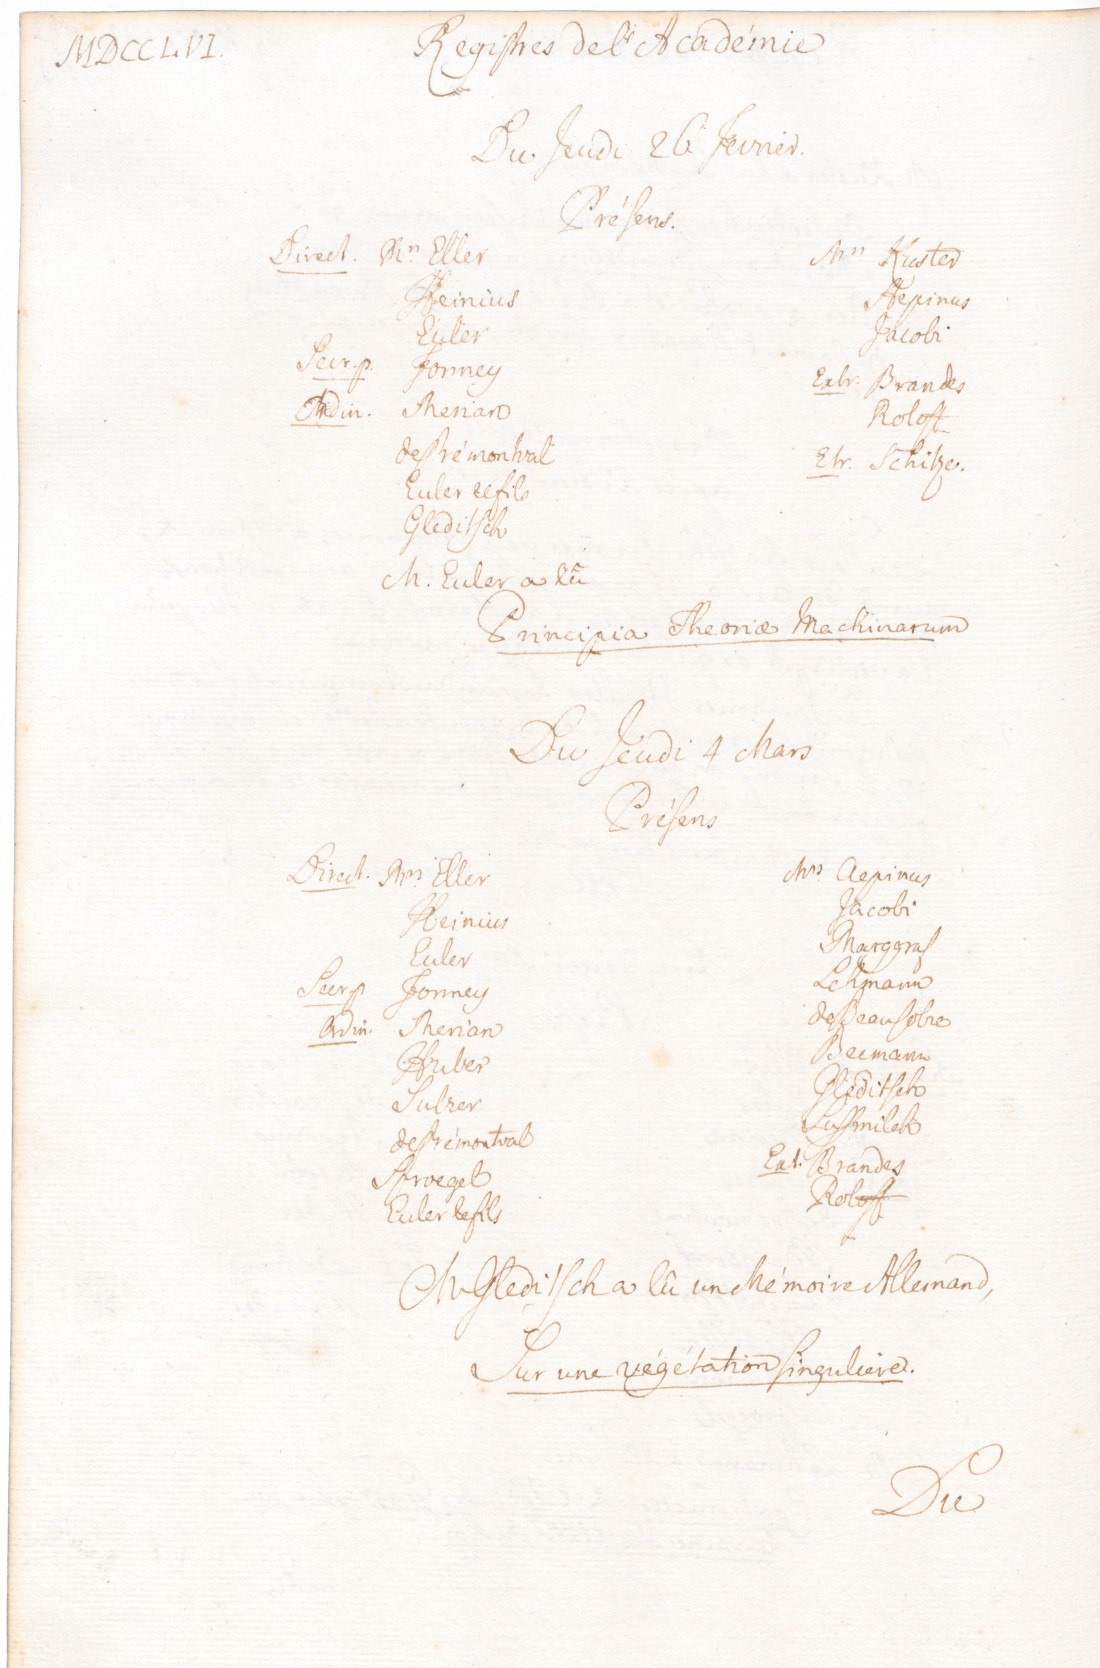 MDCCLVI.
Registres de l'Académie
Du Jeudi 26 Fevrier.
Présens.
Direct. Mrs Eller
Heinius
Euler
Secr. p. Formey
Ordin. Merian
de Prémontval
Euler le fils
Gleditsch
Mrs Kuster
Aepinus
Jacobi
Extr. Brandes
Roloff
Etr. Schütze.
M. Euler a lû
Principia Theoriæ Machinarum
Du Jeudi 4 Mars
Présens
Direct. Mrs Eller
Heinius
Euler
Secr. p Formey
Ordin. Merian
Huber
Sulzer
de Prémontval
Sproegel
Euler le fils
Mrs Aepinus
Jacobi
Marggraf
Lehmann
de Beausobre
Becmann
Gleditsch
Sussmilch
Ext. Brandes
Roloff
Mr Gleditsch a lû un Mémoire Allemand,
Sur une végétation singuliere.
Du